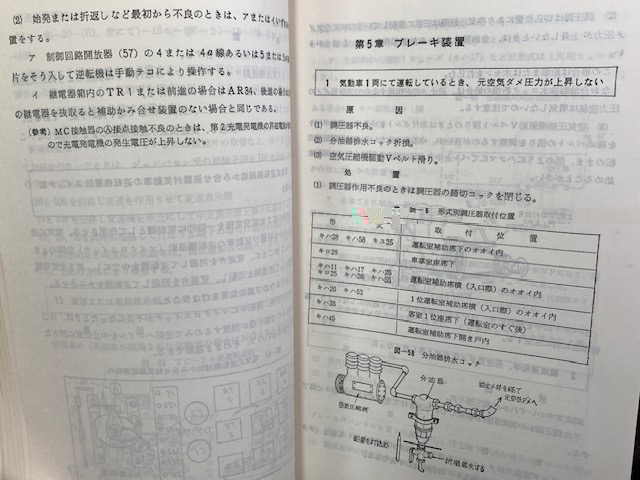 (2) 始発または折返しなど最初から不良のときは、アまたは
置をする。
ア 制御回路開放器 (57) の4または4a線あるいは5または5a
片をそう入して逆転機は手動テコにより操作する。
イ 継電器箱内のTR1または前進の場合はAR34、後進の場合は
の継電器を抜取ると補助かみ合せ装置のない場合と同じである。
(参考) MC接触器のⒶ接点接触不良のときは、第2充電発電機の界磁
ので充電発電機の発生電圧が上昇しない。
第5章 ブレーキ装置
1 気動車1両にて運転しているとき、元空気ダメ圧力が上昇しない
原 因
(1) 調圧器不良。
(2) 分油器排水コック折損。
(3) 空気圧縮機駆動Vベルト滑り。
処 置
(1) 調圧器作用不良のときは調圧器の締切コックを閉じる。
表—8 形式別調圧器取付位置
形 式 取付位置
キハ28 キハ58 キユ25 運転室補助席下のオオイ内
キロ28 車掌室座席下
キハ11 キハ17 キハ26
キロ25 キハ26 キハ55 運転室補助席横 (入口際) のオオイ内
キハ20 キハ52 1位運転室補助席横 (入口際) のオオイ内
キハ35 客室1位座席下 (運転室のすぐ後)
キハ45 運転室補助席下開き戸内
図—58 分油器排水コック
分油器
空気圧縮機
元空気ダメへ